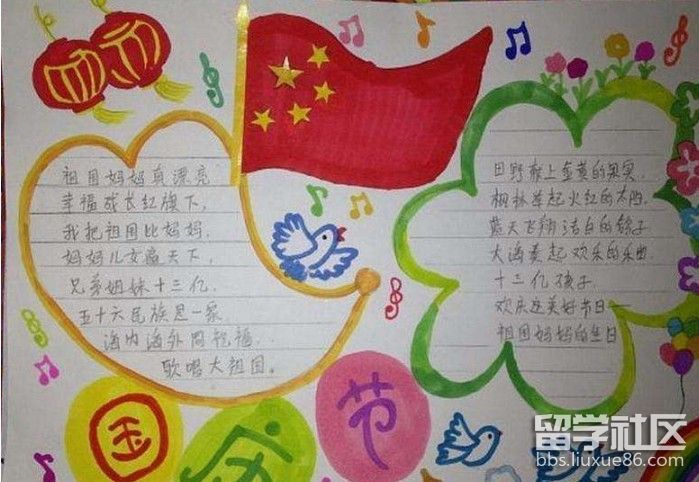 祖国妈妈真漂亮
幸福成长红旗下,
我把祖国比妈妈.
妈妈儿女遍天下,
兄弟姐妹十三亿.
五十六民族是一家
海内海外同祝福.
歌唱大祖国。
田野献上金黄的果实.
枫林举起火红的太阳.
蓝天飞翔洁白的鸽子
大海奏起欢乐的乐曲
十三亿孩子
欢庆这美好节日——
祖国妈妈的生日
国庆节
留学社区
bbs.liuxue86.com